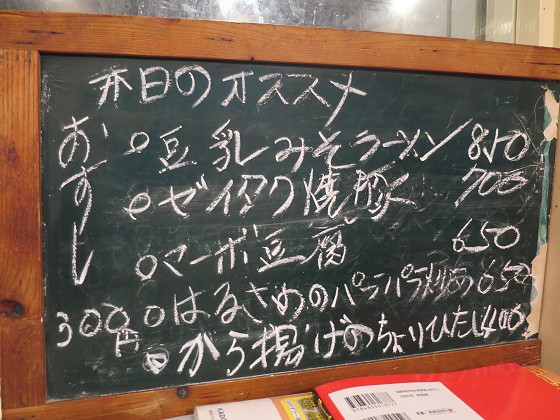 本日のオススメ
おすし
300円
○豆乳みそラーメン 850
○ゼイタク焼豚 700
○マーボ豆腐 650
○はるさめのパラパラ炒め 650
○から揚げのちょりひたし 400